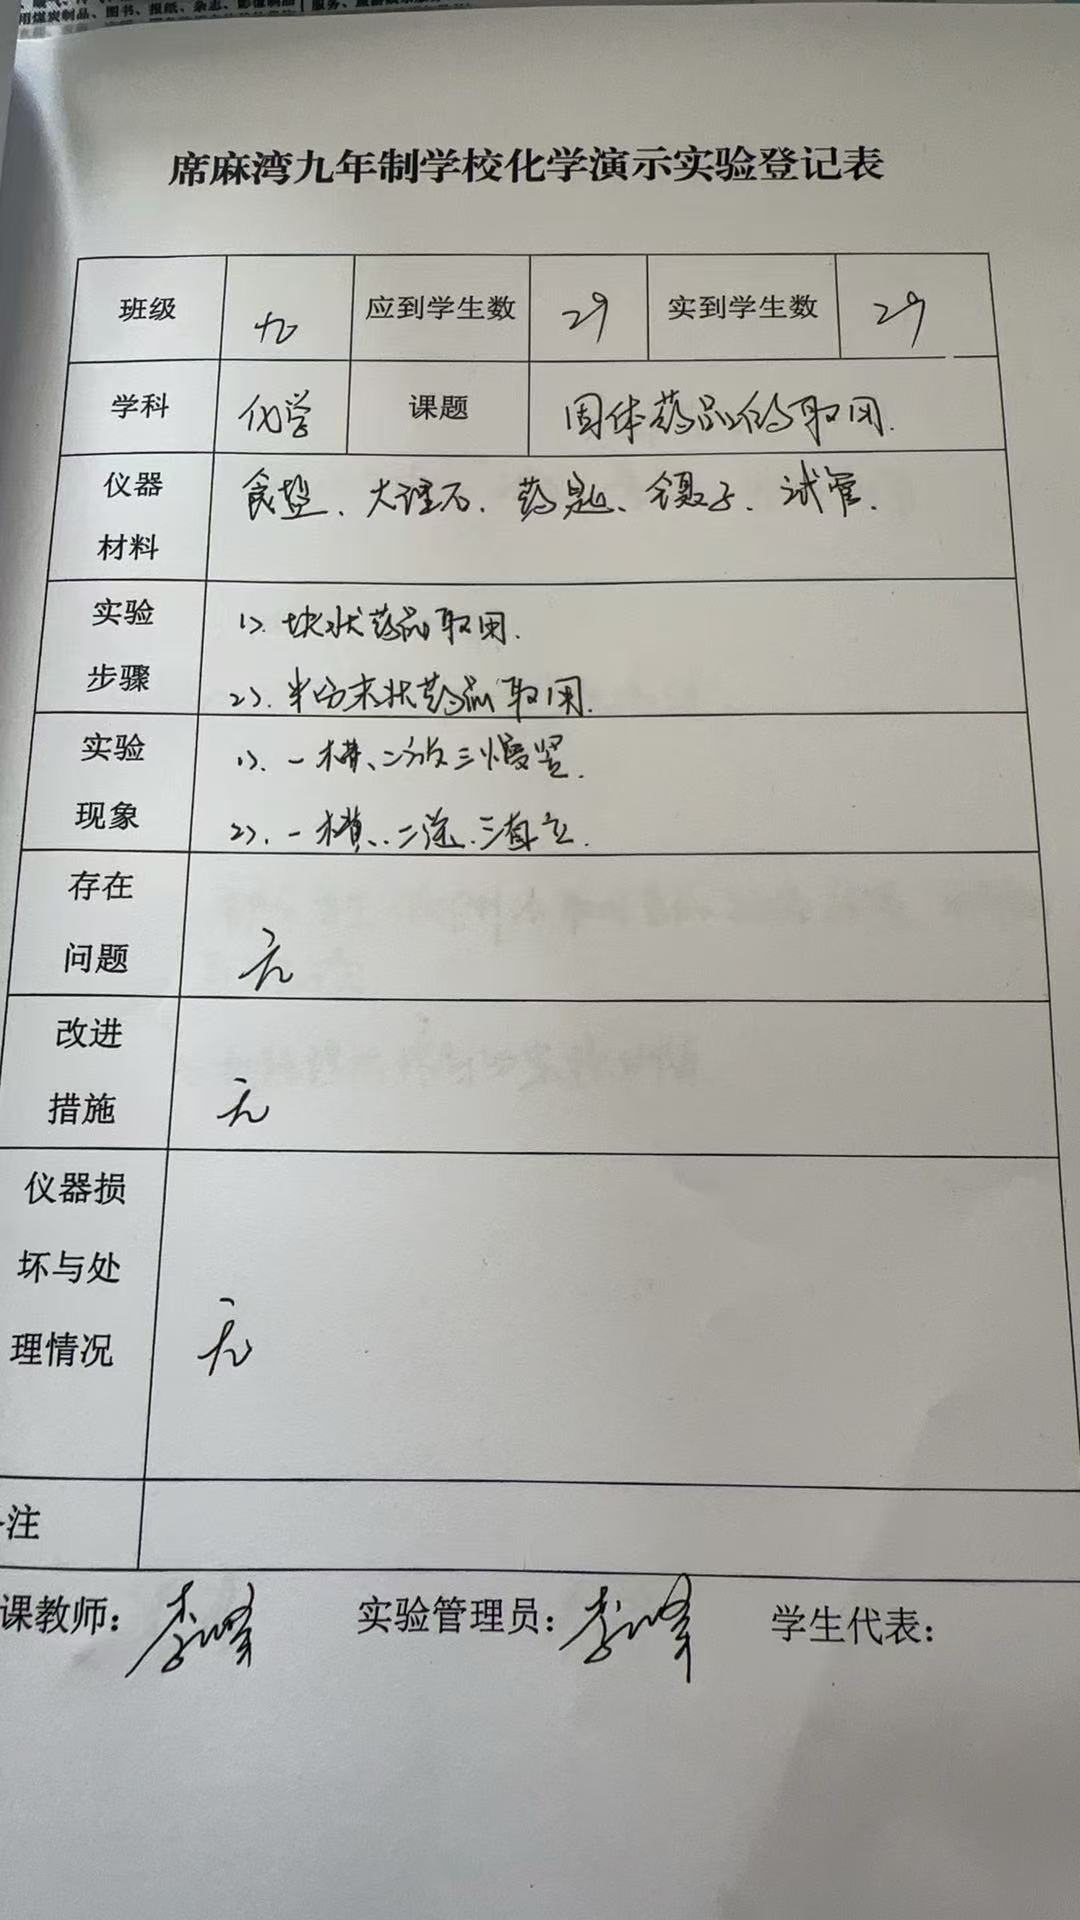 用煤炭制品、图书、报纸、杂志、影像制品
席麻湾九年制学校化学演示实验登记表
班级 九 应到学生数 29 实到学生数 29
学科 化学 课题 固体药品的取用.
仪器 食盐、大理石、药匙、镊子、试管.
材料
实验 1>. 块状药品取用.
步骤 2>. 粉末状药品取用.
实验 1>. 一横、二放三慢竖.
现象 2>. 一横、二送、三直立.
存在
问题 无
改进
措施 无
仪器损
坏与处
理情况 无
注
课教师: 李峰 实验管理员: 李峰 学生代表: